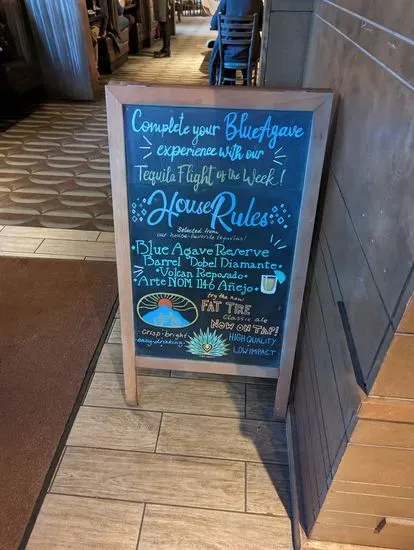 Complete your BlueAgave
experience with our
Tequila Flight of the Week!
House Rules
Selected from
our house-favorite tequilas!
• Blue Agave Reserve
Barrel • Dobel Diamante •
• Volcan Reposado •
• Arte NOM 1146 Añejo •
try the new
FAT TIRE
Classic ale
NOW ON TAP!
crisp • bright
easy-drinking
HIGH QUALITY
LOW IMPACT